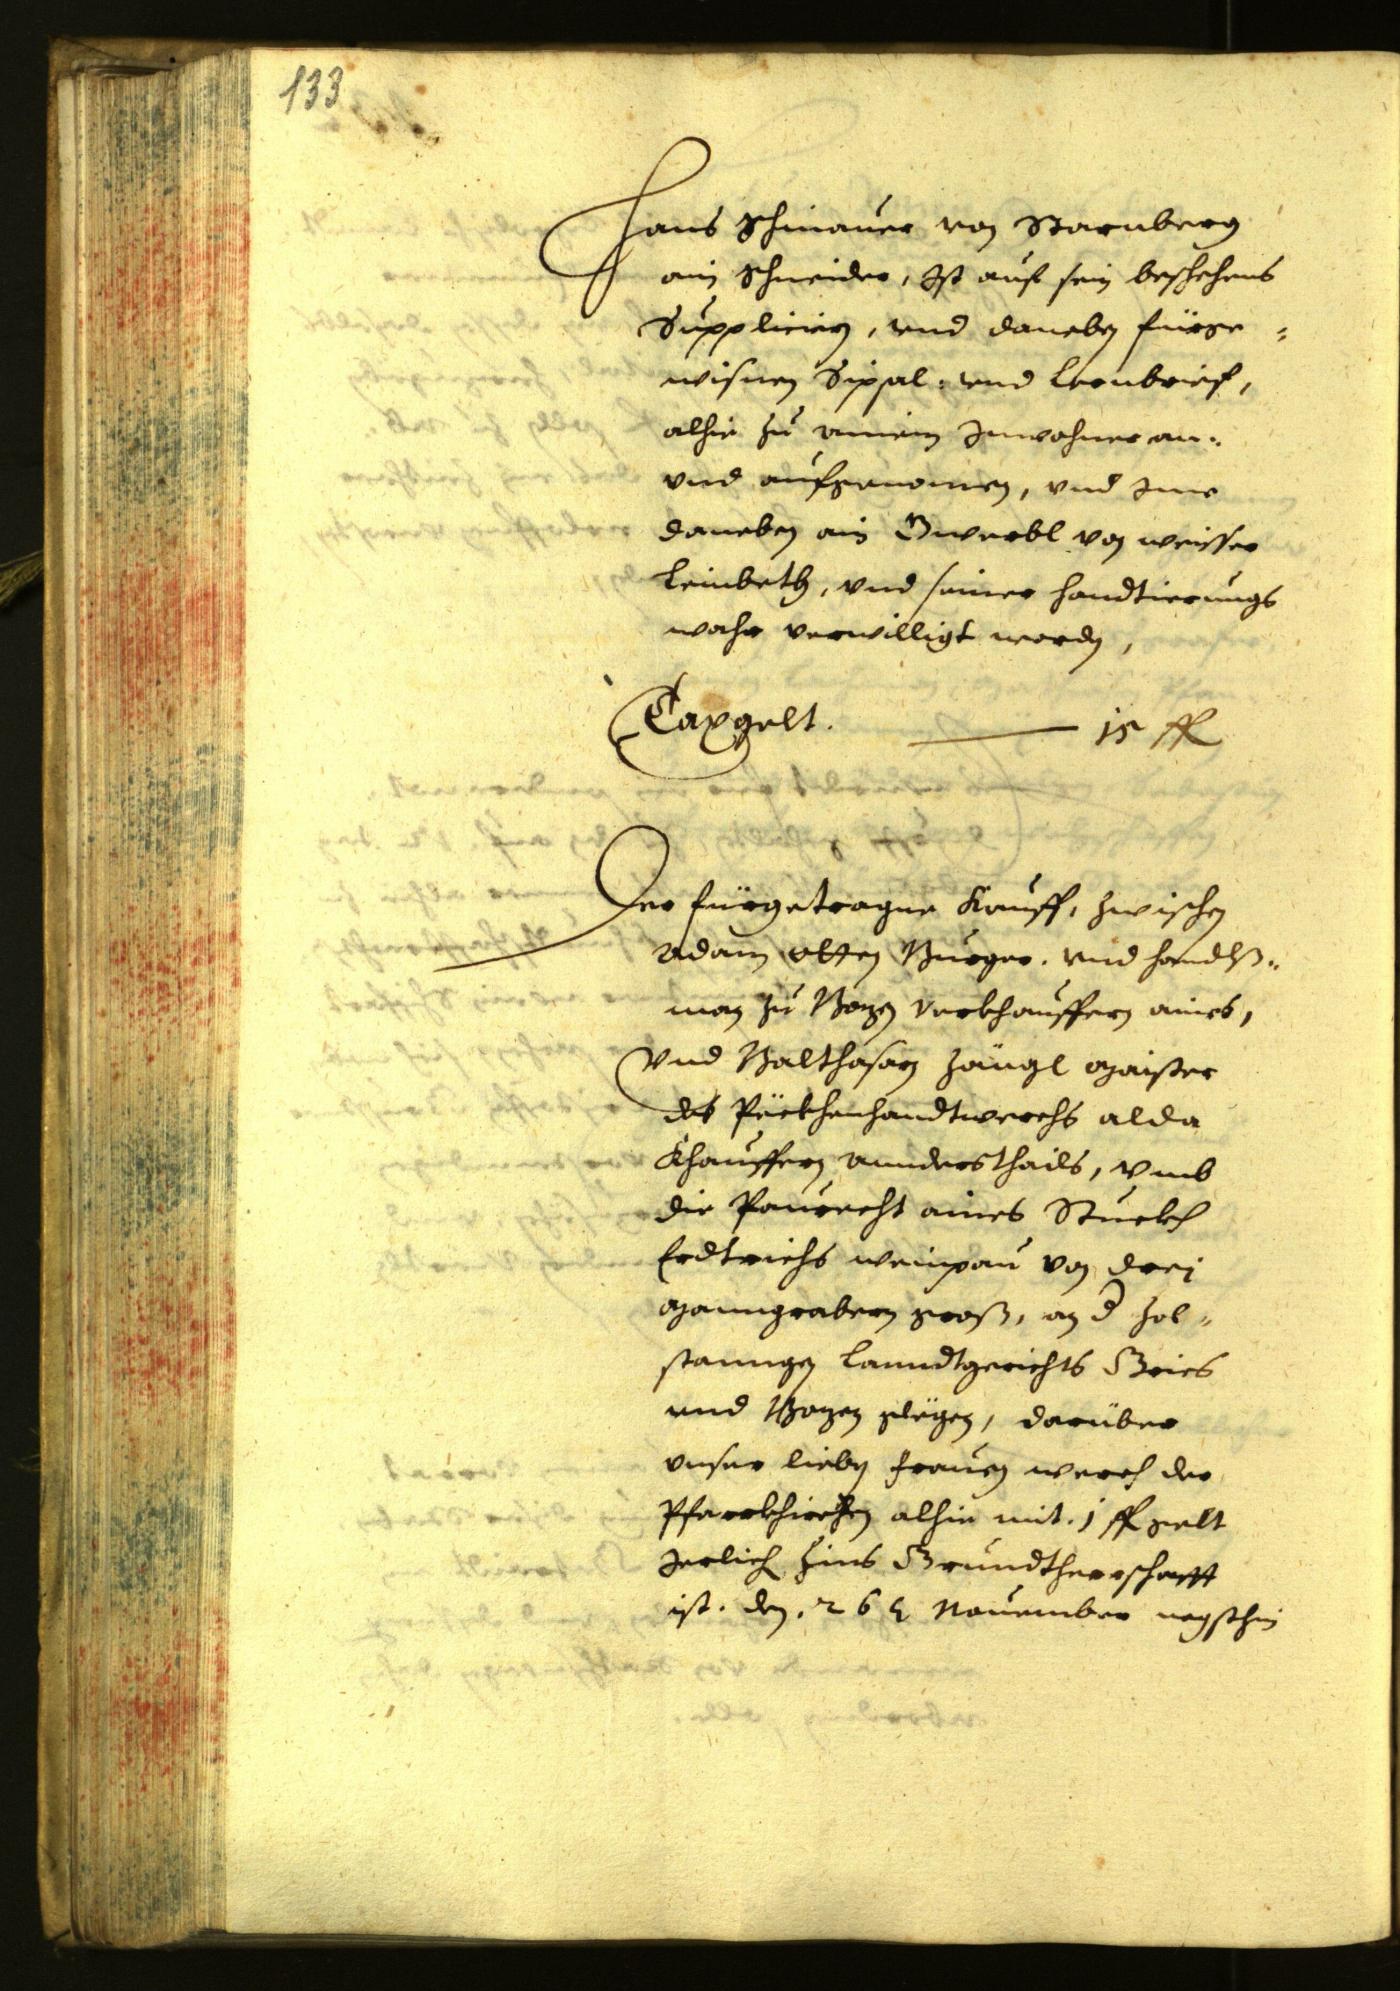 133
Hans Schinauer von Starnberg
ain Schneider, Ist auf sein beschehens
Supplicirn, vnd daneben fürge=
wisnen Sipsal: vnd Lernbrief,
alhie zu ainem Inwohner an:
vnd aufgenomen, vnd Ime
daneben ain Gwerbl von weisser
Leinbeth, vnd seiner handtierungs
wahr verwilligt worden,
Taxgelt. 15 fl
Der fürgetragne Kauff, zwischen
Adam Otten Burger. vnd handlß=
man zu Bozen Verkhauffern aines,
Vnd Balthasarn Maister
des Peckhenhandtwerchs alda
Khauffern annders thails, vmb
die Paurecht aines Stuckh
Erdtrichs weinpau von drej
Manngrabern groß, an d Hol=
stanngen Lanndtgerichts Gries
vnd Bozen glegen, darüber
vnser lieben Frauen werch der
Pfarrkhirchen alhie mit. 1 fl gelt
Jerlich Zins Grundtherrschafft
ist. den. 26 November negsthin